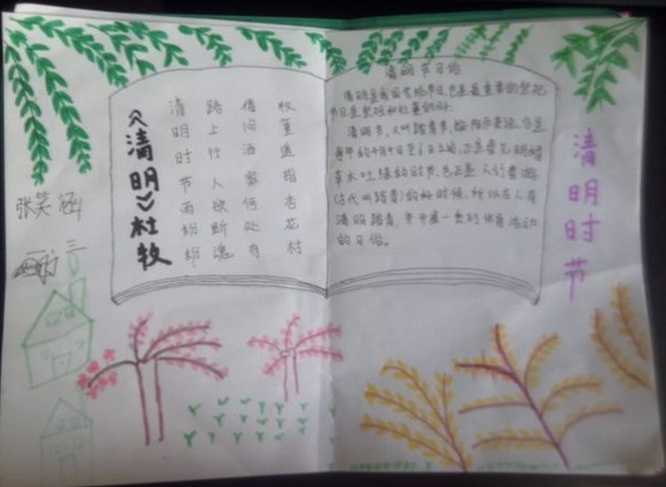 《清明》杜牧
清明时节雨纷纷
路上行人欲断魂
借问酒家何处有
牧童遥指杏花村
清明节习俗
清明是我国传统节日,也是最重要的祭祀
节日是祭祖和扫墓的日
清明节,又叫踏青节,按阳历来说,它是
每年的4月4日至6日之间,正是春光明媚
草木吐绿的时节,也正是人们春游
(古代叫踏青)的好时候,所以古人有
清明踏青,并开展一系列体育活动
的习俗。
清明时节
张笑涵
三